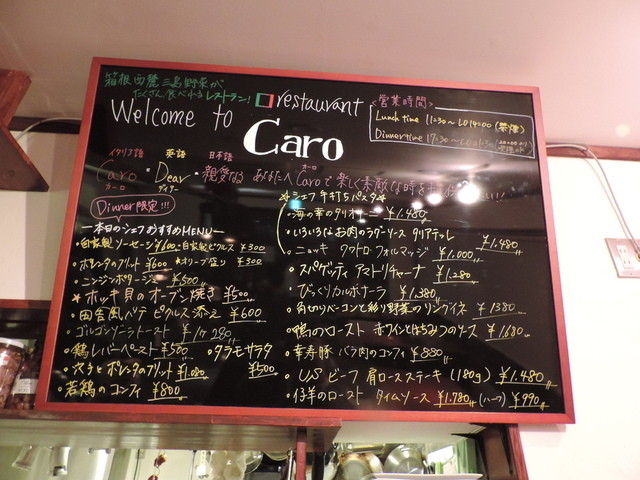 箱根西麓三島野菜が
たくさん食べれるレストラン!
restaurant
Welcome to Caro
<営業時間>
Lunch time 11:30～LO14:00 (禁煙)
Dinner time 17:30～LO21:30
イタリア語 英語 日本語
Caro・Dear・親愛なる あなたへ Caroで楽しく素敵な時を
カーロ ディアー カーロ
Dinner限定!!!
―本日のシェフおすすめMENU―
・自家製ソーセージ ¥600 ・自家製ピクルス ¥300
・ポレンタのフリット ¥600 ★オリーブ盛り ¥300
・ニンジンポタージュ ¥500
★ホッキ貝のオーブン焼き ¥500
・田舎風パテ ピクルス添え ¥600
・ゴルゴンゾーラトースト ¥1ヶ280
・鶏レバーペースト ¥500 ・タラモサラタ ¥500
・穴子とポレンタのフリット ¥1,080
・若鶏のコンフィ ¥800
★シェフ手打ちパスタ★
・海の幸のタリオリーニ ¥1,480
・いろいろなお肉のラグーソース タリアテッレ ¥1,480
・ニョッキ クワトロ・フォルマッジ ¥1,000
・スパゲッティ アマトリチャーナ ¥1,280
・びっくりカルボナーラ ¥1,380
・角切りベーコンと彩り野菜のリングイネ ¥1380
・鴨のロースト 赤ワインとはちみつのソース ¥1,680
・幸寿豚 バラ肉のコンフィ ¥880
・USビーフ 肩ロースステーキ (180g) ¥1,480
・仔羊のロースト タイムソース ¥1,780 (ハーフ) ¥990